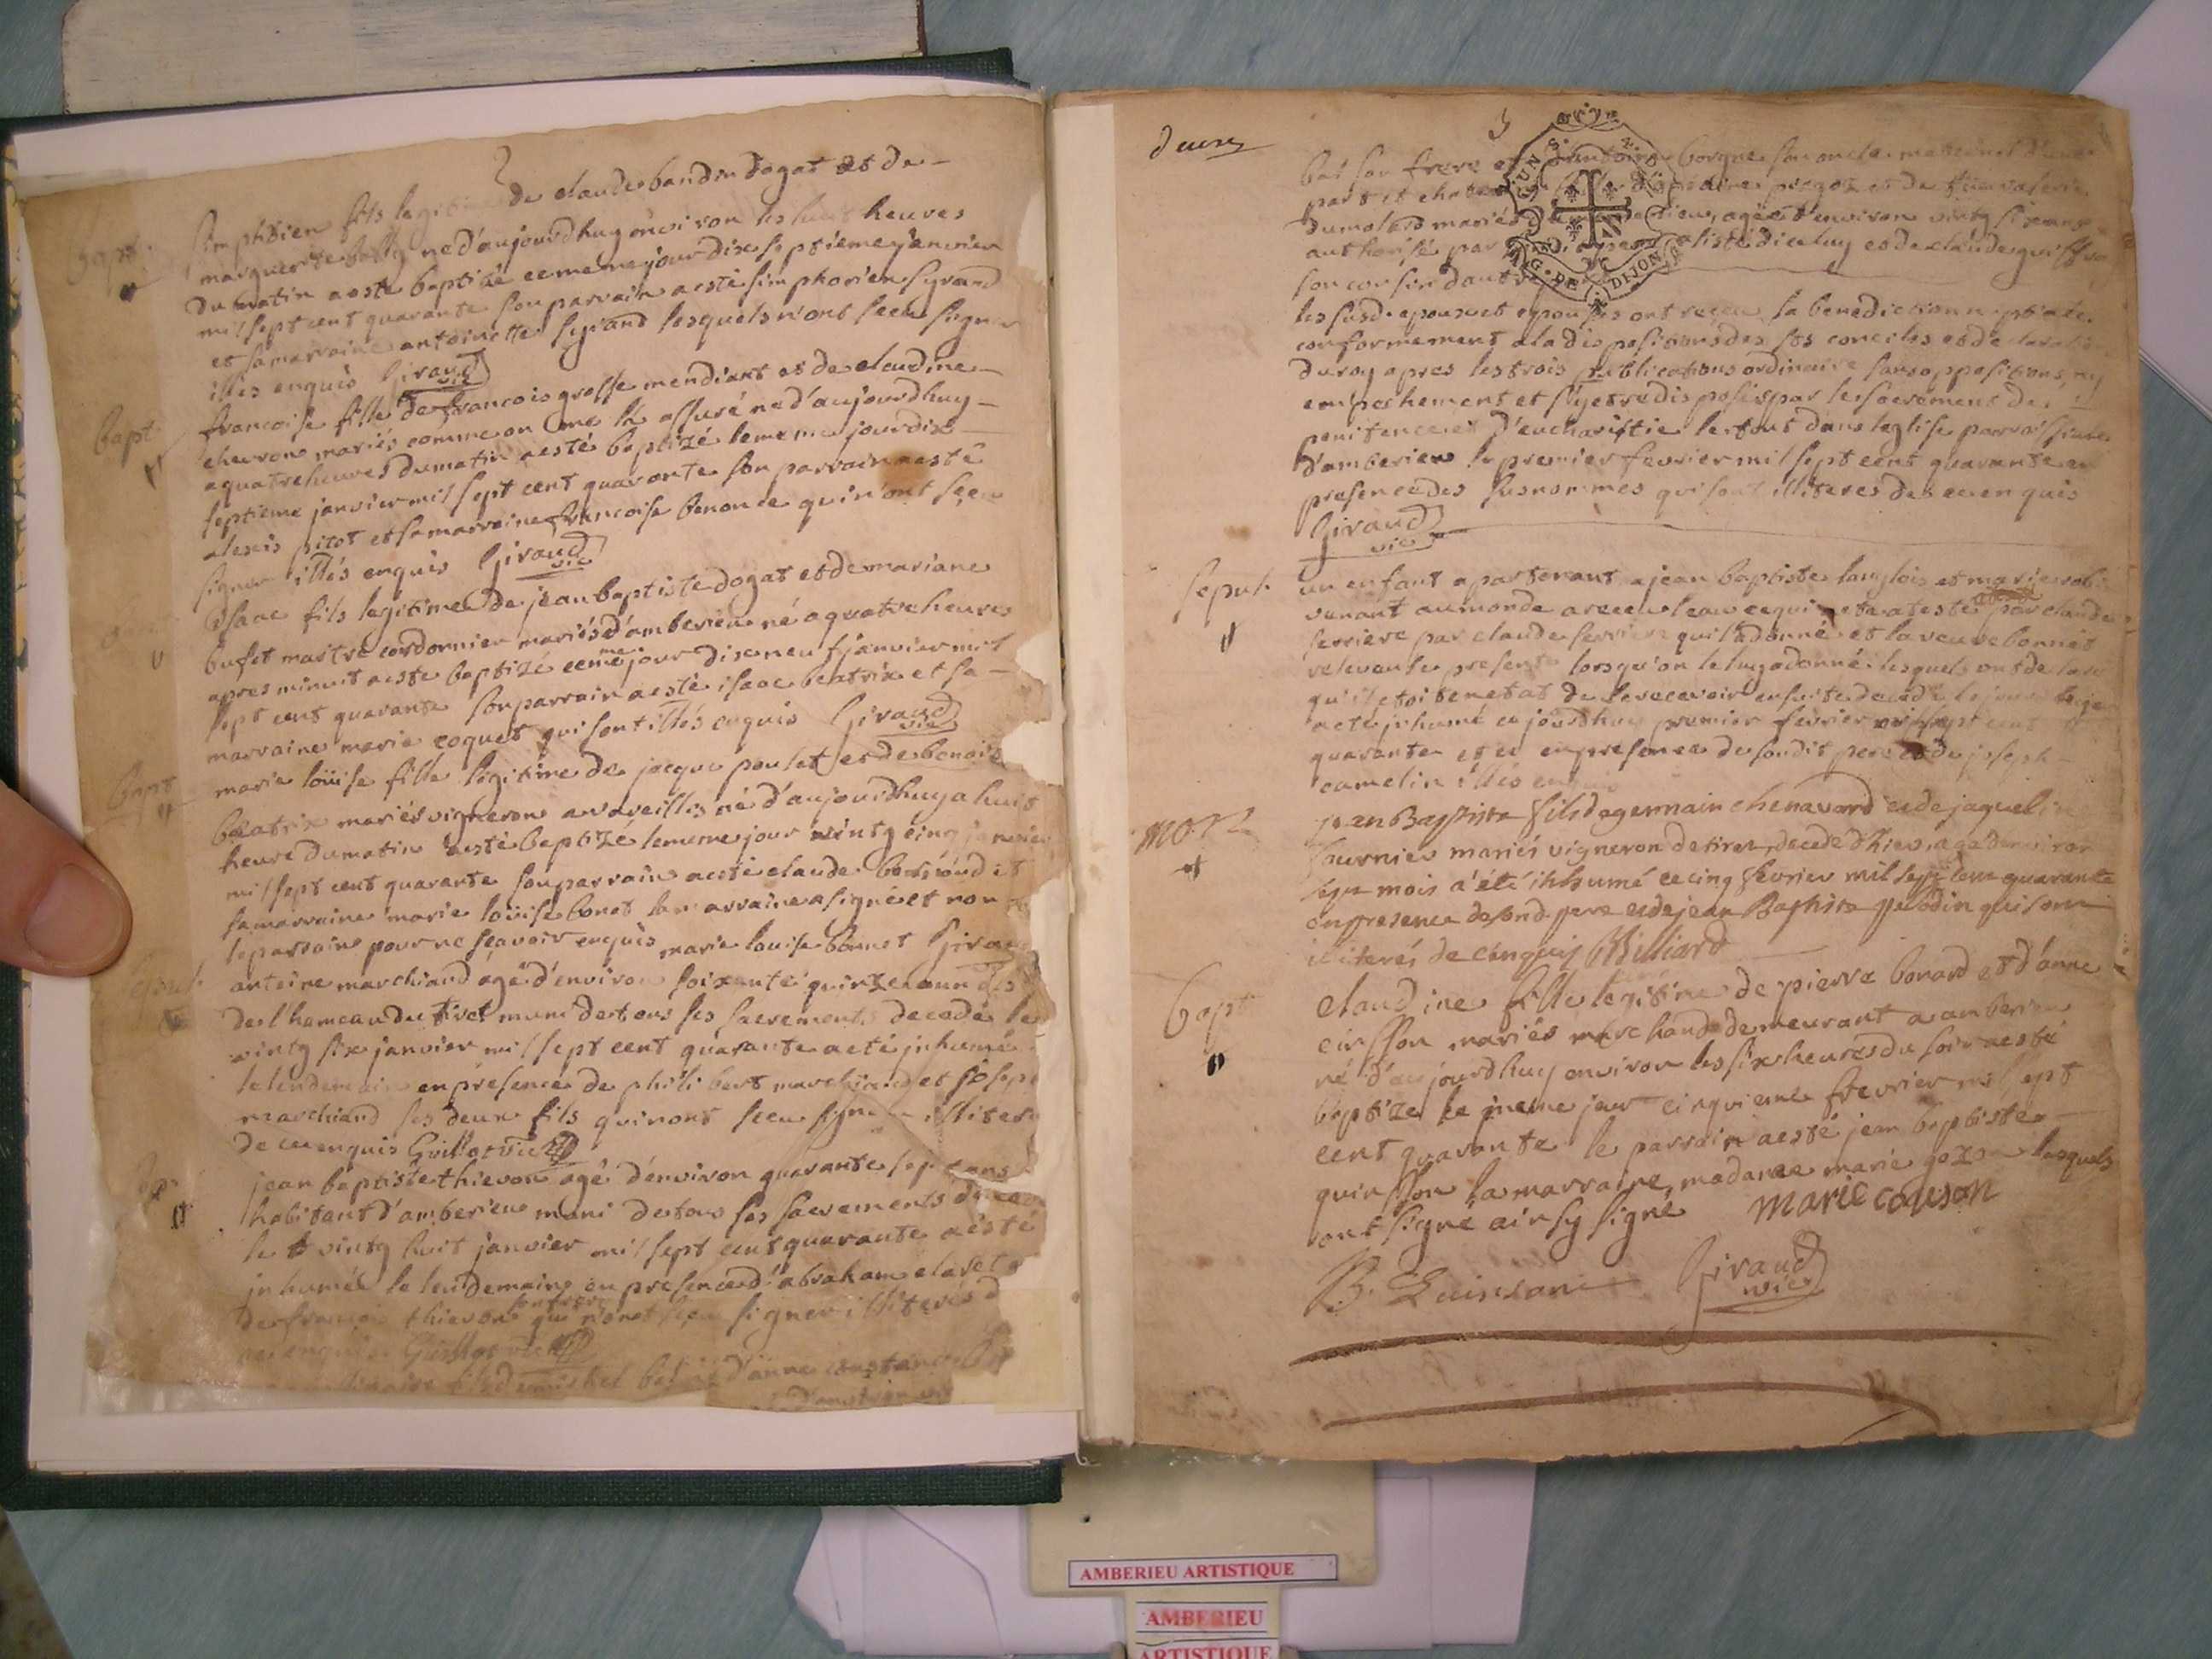 bapt.
simphorien fils legitime de claude bandin dogat et de
marguerite ne d'aujourdhuy environ les huit heures
du matin a esté baptizé ce meme jour dix septieme janvier
mil sept cent quarante son parrain a esté simphorien syrand
et sa marraine antoinette syrand lesquels n'ont sceu signer
illes enquis Giraud vic
bapt.
francoise fille de francois grosse mendiant et de claudine
chevron mariés comme on me la assuré né d'aujourdhuy
a quatre heures du matin a esté baptizé le meme jour dix
septieme janvier mil sept cent quarante son parrain a esté
alexis pitot et sa marraine francoise benonce qui n'ont sceu
signer illés enquis Giraud vic
isaac fils legitime de jean baptiste dogat et de mariane
bufet maitre cordonnier mariés d'amberieu né a quatre heures
apres minuit a esté baptizé ce meme jour dix neuf janvier mil
sept cent quarante son parrain a esté isaac beatrix et sa
marraine marie coquet qui sont illés enquis Giraud vic
bapt
marie loüise fille legitime de jacque poulet et de benoite
beatrix mariés vigneron a vareilles né d'aujourdhuy a huit
heure du matin a esté baptizé le meme jour vintg cinq janvier
mil sept cent quarante son parrain a esté claude et
sa marraine marie loüise bonet la marraine a signé et non
le parrain pour ne scavoir enquis marie louise bonnet Giraud
sepul.
antoine marchiand agé d'environ soixante quinze ans
de l hameau du tiret muni de tous ses sacrements decedé le
vintg six janvier mil sept cent quarante a eté inhumé
le lendemain en presence de philibert marchiand et josep
marchiand ses deux fils qui n'ont sceu signer illiter
de ce enquis Guillot vic
jean baptiste thievon agé d'environ quarante sept ans
habitant d'amberieu muni de tous ses sacrements
le vintg huit janvier mil sept cent quarante a esté
inhumé le lendemain en presence d'abraham claret
de francois thievon son frere qui n'ont sceu signer illiterés d
ce enquis Guillot vic
fils de michel d'anne constance
d'environ
3
bal son frere et borgne son oncle maternel d'une
part et
dumolard mariés agée d'environ vintg six ans
authorisé par et de claude
son cousin d'autre
les susd. epoux et epouses ont reçeu la benediction nuptiale
conformement a la dispositions des sts conciles et declaration
du roy apres les trois publications ordinaire sans oppositions, ny
empechement et s'y etre disposés par le sacrement de
penitence et d'eucharistie le tout dans leglise parroissiale
d'amberieu le premier fevrier mil sept cent quarante en
presence des susnommes qui sont illiteres de ce enquis
Giraud vic
sepul.
un enfant apartenant a jean baptiste langlois et marie
venant au monde a receu leau ce qui a esté attesté par claude
ferriere par claude ferriere qui l'a donné et la veuve bonnet
relevante presente lorsqu'on le luy a donné lesquels ont declaré
qu'il etoit en etat de la recevoir ensuite decedé
a eté inhumé ce jourdhuy premier fevrier mil sept cent
quarante et ce en presence de sondit pere et de joseph
camelin illés enquis
mort
jean Baptiste fils de germain chenavard et de jaqueline
fournier mariés vigneron de tiret, decede d'hier, agé d'environ
mois a été inhumé ce cinq fevrier mil sept cent quarante
en presence de sond. pere et de jean Baptiste qui sont
illiterés de ce enquis Billiard
bapt
claudine fille legitime de pierre bonard et d'anne
cinsson mariés marchand demeurant a amberieu
né d'aujourdhuy environ les six heures du soir a esté
baptizé le meme jour cinquieme fevrier mil sept
cent quarante le parrain a esté jean baptiste
quinsson la marraine, madame marie gozon lesquels
ont signé ainsy signé marie couson
B. Quinsson Giraud vic
AMBERIEU ARTISTIQUE
AMBERIEU
ARTISTIQUE